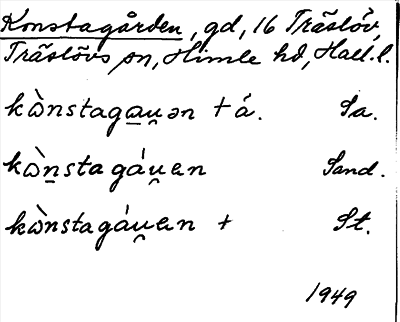 Konstagården, gd, 16 Träslöv,
Träslövs sn, Himle hd, Hall. l.
kὼnstagau̯ən + á. Sa.
kὼnstagáu̯en Sand.
kὼnstagáu̯en + St.
1949